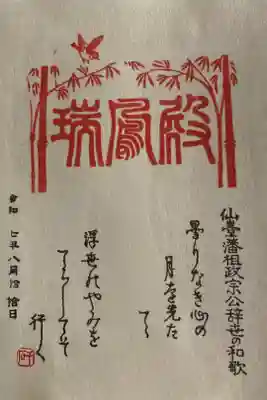 瑞鳳殿
仙臺藩祖政宗公辞世の和歌
曇りなき心の
月を先た
てゝ
浮世のやみを
てらしてそ
行く
令和 七年 八月 拾日